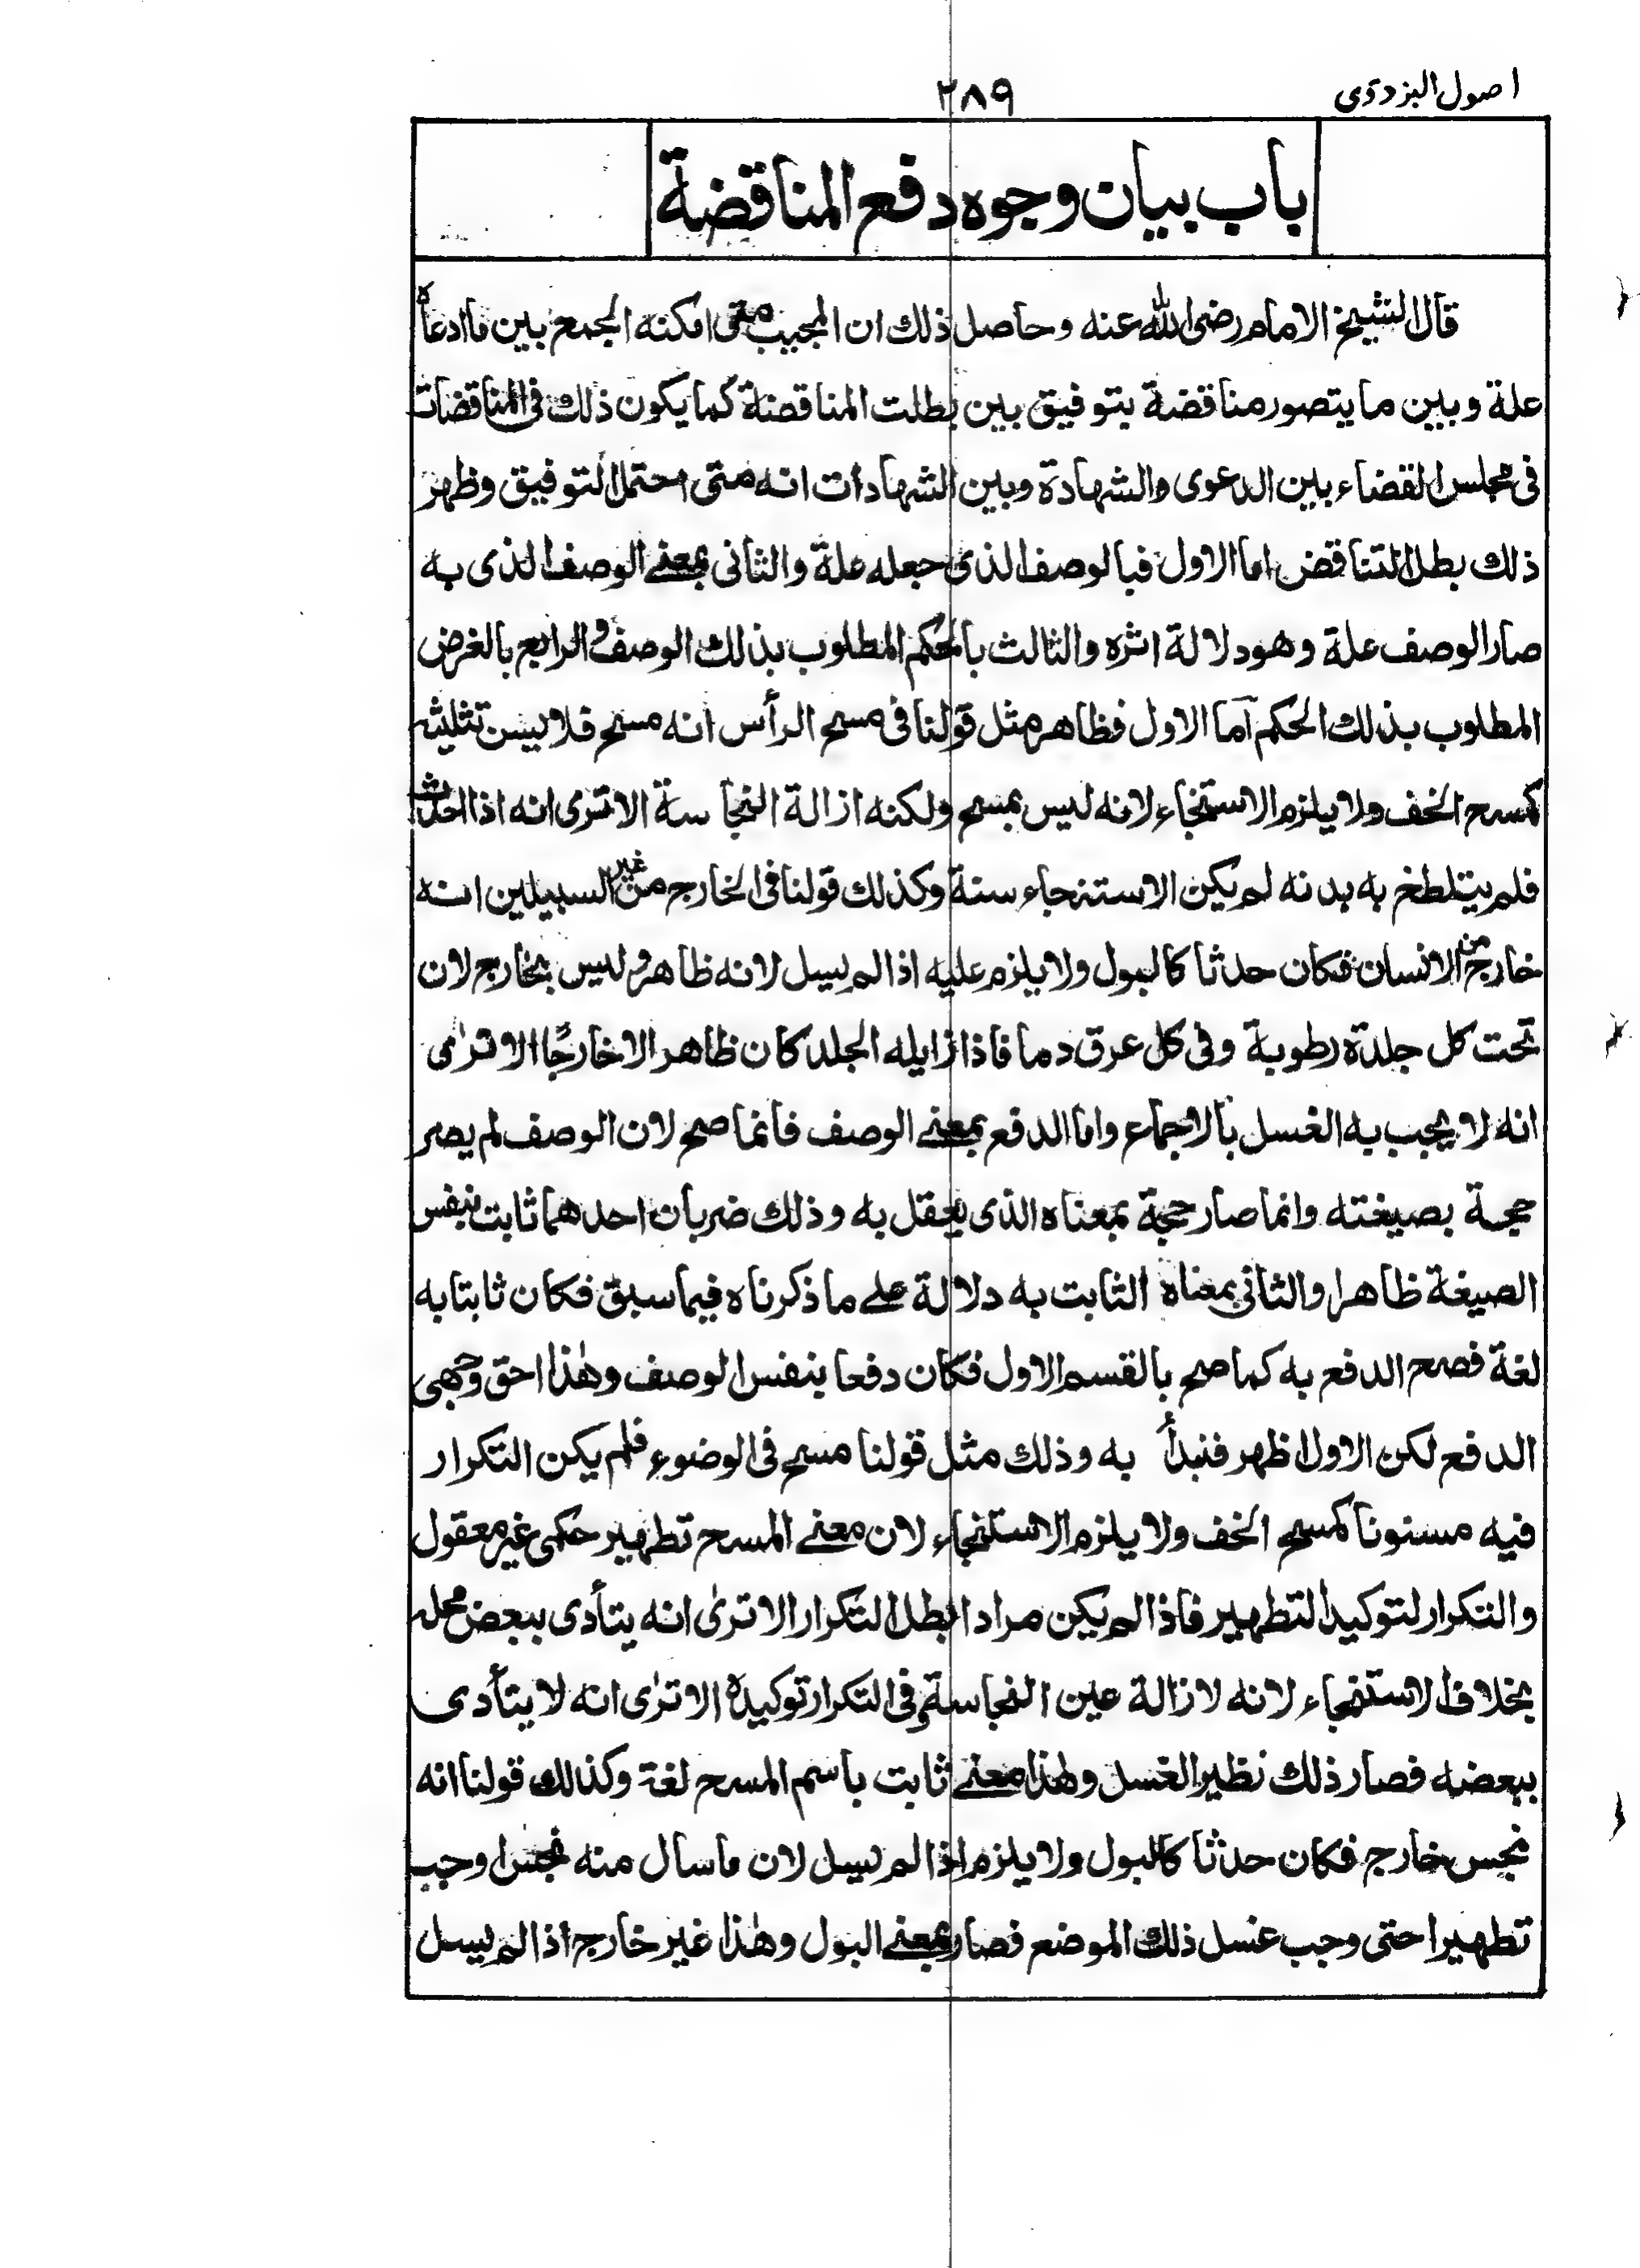 اصول البزدوی
۲۸۹
باب بيان وجوه دفع المناقضة
قال الشيخ الامام رضی الله عنه وحاصل ذلك ان المجيب متى امكنه الجمع بين ما ادعاه
علة وبين ما يتصور مناقضة بتوفيق بين بطلت المناقضة كما يكون ذلك فى المناقضات
فى مجلس القضاء بين الدعوى والشهادة وبين الشهادات انه متى احتمل التوفيق وظهر
ذلك بطل التناقض اما الاول فبالوصف الذى جعله علة والثانى بمعنے الوصف الذى به
صار الوصف علة وهو دلالة اثره والثالث بالحكم المطلوب بذلك الوصف والرابع بالغرض
المطلوب بذلك الحكم اما الاول فظاهر مثل قولنا فى مسح الرأس انه مسح فلا يسن تثليثه
كمسح الخف ولا يلزم الاستنجاء لانه ليس بمسح ولكنه ازالة النجاسة الا ترى انه اذا احدث
فلم يتلطخ به بدنه لم يكن الاستنجاء سنة وكذلك قولنا فى الخارج من غير السبيلين انه
خارج من الانسان فكان حدثا كالبول ولا يلزم عليه اذا لم يسل لانه ظاهر وليس بخارج لان
تحت كل جلدة رطوبة وفى كل عرق دما فاذا زايله الجلد كان ظاهرا لا خارجًا الا ترٰى
انه لا يجب به الغسل بالاجماع واما الدفع بمعنے الوصف فانما صح لان الوصف لم يصر
حجة بصيغته وانما صار حجة بمعناه الذى يعقل به وذلك ضربان احدهما ثابت بنفس
الصيغة ظاهرا والثانى بمعناه الثابت به دلالة علے ما ذكرناه فيما سبق فكان ثابتا به
لغة فصح الدفع به كما صح بالقسم الاول فكان دفعا بنفس الوصف وهٰذا احق وجهى
الدفع لكن الاول اظهر فنبدأ به وذلك مثل قولنا مسح فى الوضوء فلم يكن التكرار
فيه مسنونا كمسح الخف ولا يلزم الاستنجاء لان معنے المسح تطهير حكمى غير معقول
والتكرار لتوكيد التطهير فاذا لم يكن مرادا بطل التكرار الا ترٰى انه يتأدى ببعض محله
بخلاف الاستنجاء لانه لازالة عين النجاسة وفى التكرار توكيده الا ترٰى انه لا يتأدى
ببعضه فصار ذلك نظير الغسل وهٰذا معنے ثابت باسم المسح لغة وكذلك قولنا انه
نجس خارج فكان حدثا كالبول ولا يلزم اذا لم يسل لان ما سال منه نجس اوجب
تطهيرا حتى وجب غسل ذلك الموضع فصار بمعنے البول وهٰذا غير خارج اذا لم يسل